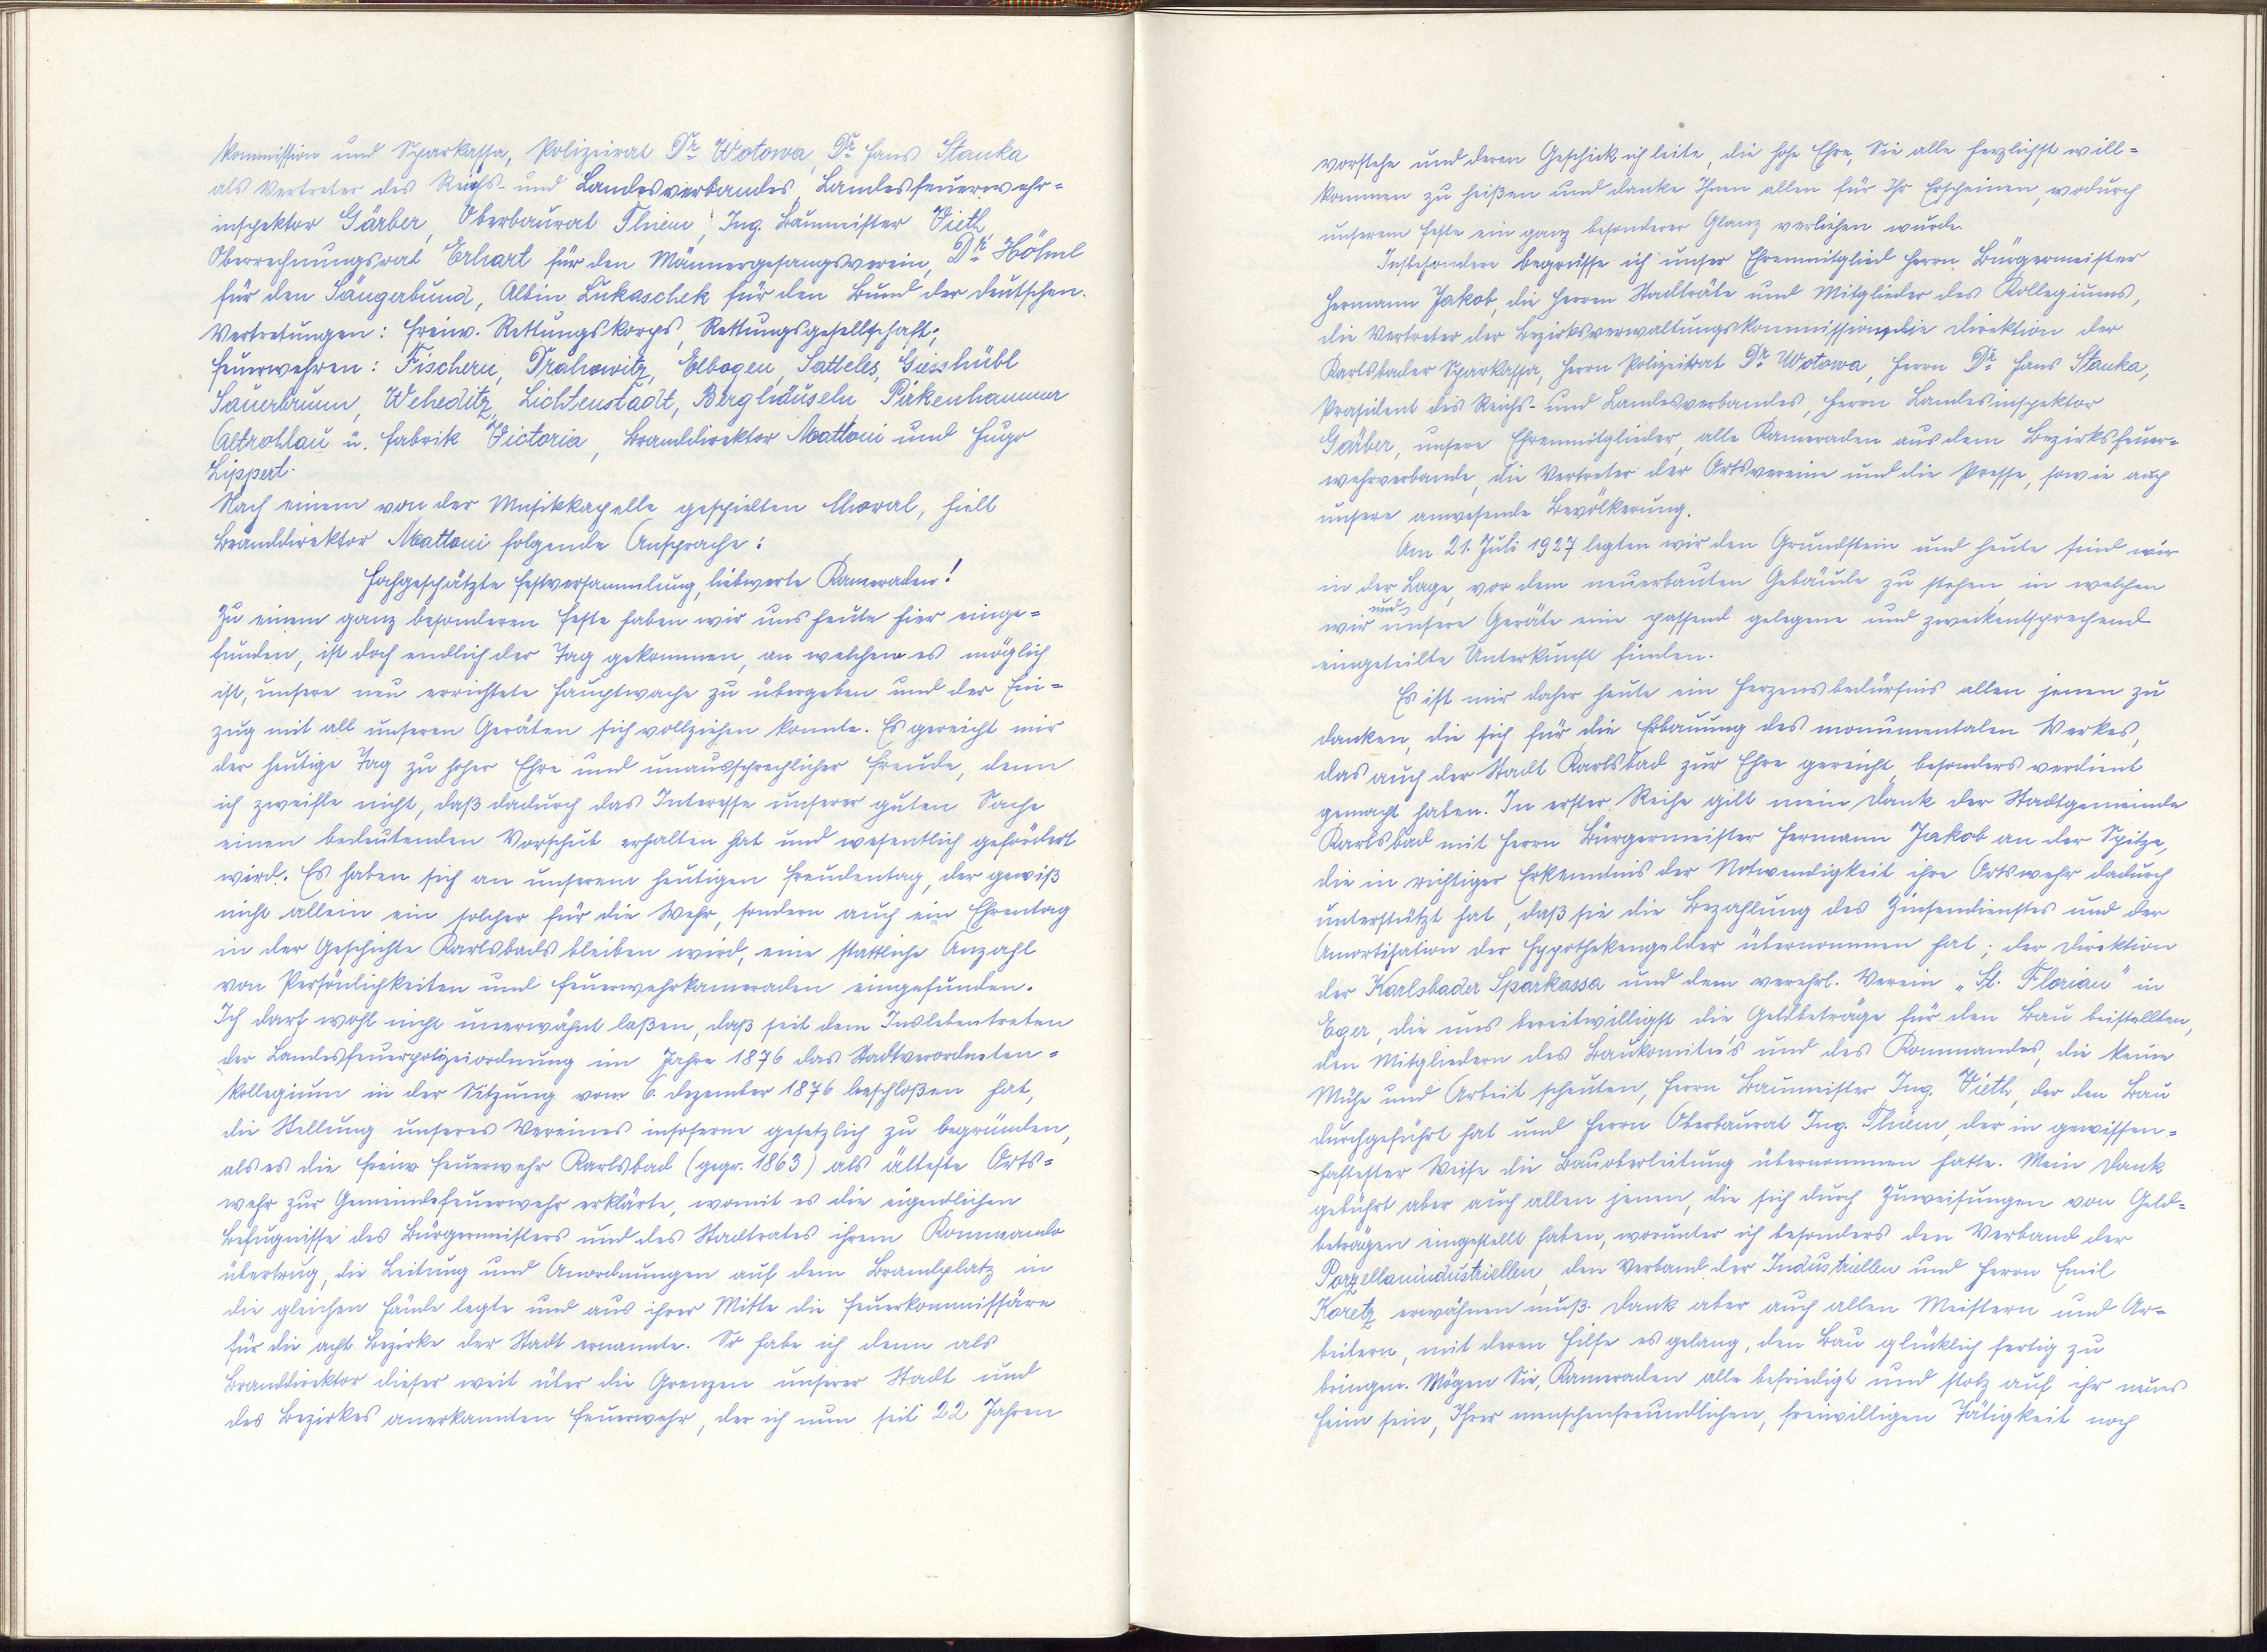 Kommission und Sparkassa, Polizeirat Dr. Wotowa, Dr. Hans Stanka
als Vertreter des Reichs- und Landesverbandes, Landesfeuerwehr-
inspektor Gärber, Oberbaurat Thiem, Ing. Baumeister Vieth,
Oberrechnungsrat Erhart für den Männergesangsverein, Dr. Höhnl
für den Sängerbund, Albin Lukaschek für den Bund der Deutschen.
Vertretungen: Freiw. Rettungskorps, Rettungsgesellschaft;
Feuerwehren: Fischern, Drahowitz, Elbogen, Satteles, Giesshübl
Sauerbrunn, Weheditz, Lichtenstadt, Berghäuseln, Pirkenhammer
Altrohlau u. Fabrik Victoria, Branddirektor Mattoni und Hugo
Lippert.
Nach einem von der Musikkapelle gespielten Choral, hielt
Branddirektor Mattoni folgende Ansprache:
Hochgeschätzte Festversammlung, liebwerte Kameraden!
Zu einem ganz besonderen Feste haben wir uns heute hier einge-
funden, ist doch endlich der Tag gekommen, an welchem es möglich
ist, unsere neu errichtete Hauptwache zu übergeben und der Ein-
zug mit all unseren Geräten sich vollziehen konnte. Es gereicht mir
der heutige Tag zu hoher Ehre und unaussprechlicher Freude, denn
ich zweifle nicht, daß dadurch das Interesse unserer guten Sache
einen bedeutenden Vorschub erhalten hat und wesentlich gefördert
wird. Es haben sich an unserem heutigen Freudentag, der gewiß
nicht allein ein solcher für die Wehr, sondern auch ein Ehrentag
in der Geschichte Karlsbads bleiben wird, eine stattliche Anzahl
von Persönlichkeiten und Feuerwehrkameraden eingefunden.
Ich darf wohl nicht unerwähnt laßen, daß seit dem Inslebentreten
der Landesfeuerpolizeiordnung im Jahre 1876 das Stadtverordneten-
kollegium in der Sitzung vom 6. Dezember 1876 beschloßen hat,
die Stellung unseres Vereines insoferne gesetzlich zu begründen,
als es die freiw. Feuerwehr Karlsbad (gegr. 1863) als älteste Orts-
wehr zur Gemeindefeuerwehr erklärte, womit es die eigentlichen
Befugnisse des Bürgermeisters und des Stadtrates ihrem Kommando
übertrug, die Leitung und Anordnungen auf dem Brandplatz in
die gleichen Hände legte und aus ihrer Mitte die Feuerkommissäre
für die acht Bezirke der Stadt ernannte. So habe ich denn als
Branddirektor dieser weit über die Grenzen unserer Stadt und
des Bezirkes anerkannten Feuerwehr, der ich nun seit 22 Jahren
vorstehe und deren Geschick ich leite, die hohe Ehre, Sie alle herzlichst will-
kommen zu heißen und danke Ihnen allen für Ihr Erscheinen, wodurch
unserem Feste ein ganz besonderer Glanz verliehen wurde.
Insbesondere begrüsse ich unser Ehrenmitglied Herrn Bürgermeister
Hermann Jakob, die Herren Stadträte und Mitglieder des Kollegiums,
die Vertreter der Bezirksverwaltungskommission, die Direktion der
Karlsbader Sparkassa, Herrn Polizeirat Dr. Wotowa, Herrn Dr. Hans Stanka,
Präsident des Reichs- und Landesverbandes, Herrn Landesinspektor
Gärber, unsere Ehrenmitglieder, alle Kameraden aus dem Bezirksfeuer-
wehrverbande, die Vertreter der Ortsvereine und die Presse, sowie auch
unsere anwesende Bevölkerung.
Am 21. Juli 1927 legten wir den Grundstein und heute sind wir
in der Lage, vor dem neuerbauten Gebäude zu stehen, in welchen
wir und unsere Geräte eine passend gelegene und zweckentsprechend
eingeteilte Unterkunft finden.
Es ist mir daher heute ein Herzensbedürfnis allen jenen zu
danken, die sich für die Erbauung des monumentalen Werkes,
das auch der Stadt Karlsbad zur Ehre gereicht, besonders verdient
gemacht haben. In erster Reihe gilt mein Dank der Stadtgemeinde
Karlsbad mit Herrn Bürgermeister Hermann Jakob an der Spitze,
die in richtiger Erkenntnis der Notwendigkeit ihre Ortswehr dadurch
unterstützt hat, daß sie die Bezahlung des Zinsendienstes und der
Amortisation der Hypothekengelder übernommen hat; der Direktion
der Karlsbader Sparkassa und dem verehrl. Verein „St. Florian" in
Eger, die uns bereitwilligst die Geldbeträge für den Bau beistellten,
den Mitgliedern des Baukomitee's und des Kommandos, die keine
Mühe und Arbeit scheuten, Herrn Baumeister Ing. Vieth, der den Bau
durchgeführt hat und Herrn Oberbaurat Ing. Thiem, der in gewissen-
haftester Weise die Bauoberleitung übernommen hatte. Mein Dank
gebührt aber auch allen jenen, die sich durch Zuweisungen von Geld-
beträgen eingestellt haben, worunter ich besonders den Verband der
Porzellanindustriellen, den Verband der Industriellen und Herrn Emil
Koretz erwähnen muß. Dank aber auch allen Meistern und Ar-
beitern, mit deren Hilfe es gelang, den Bau glücklich fertig zu
bringen. Mögen Sie, Kameraden alle befriedigt und stolz auf ihr neues
Heim sein, Ihrer menschenfreundlichen, freiwilligen Tätigkeit noch